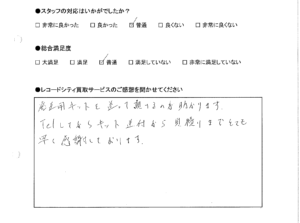 ●スタッフの対応はいかがでしたか？
□非常に良かった □良かった ☑普通 □良くない □非常に良くない
●総合満足度
□大満足 □満足 ☑普通 □満足していない □非常に満足していない
●レコードシティ買取サービスのご感想を聞かせてください
キットを送って頂けるのは助かります。
Telしてからキット送付から見積りまでとても
早く感謝しております。